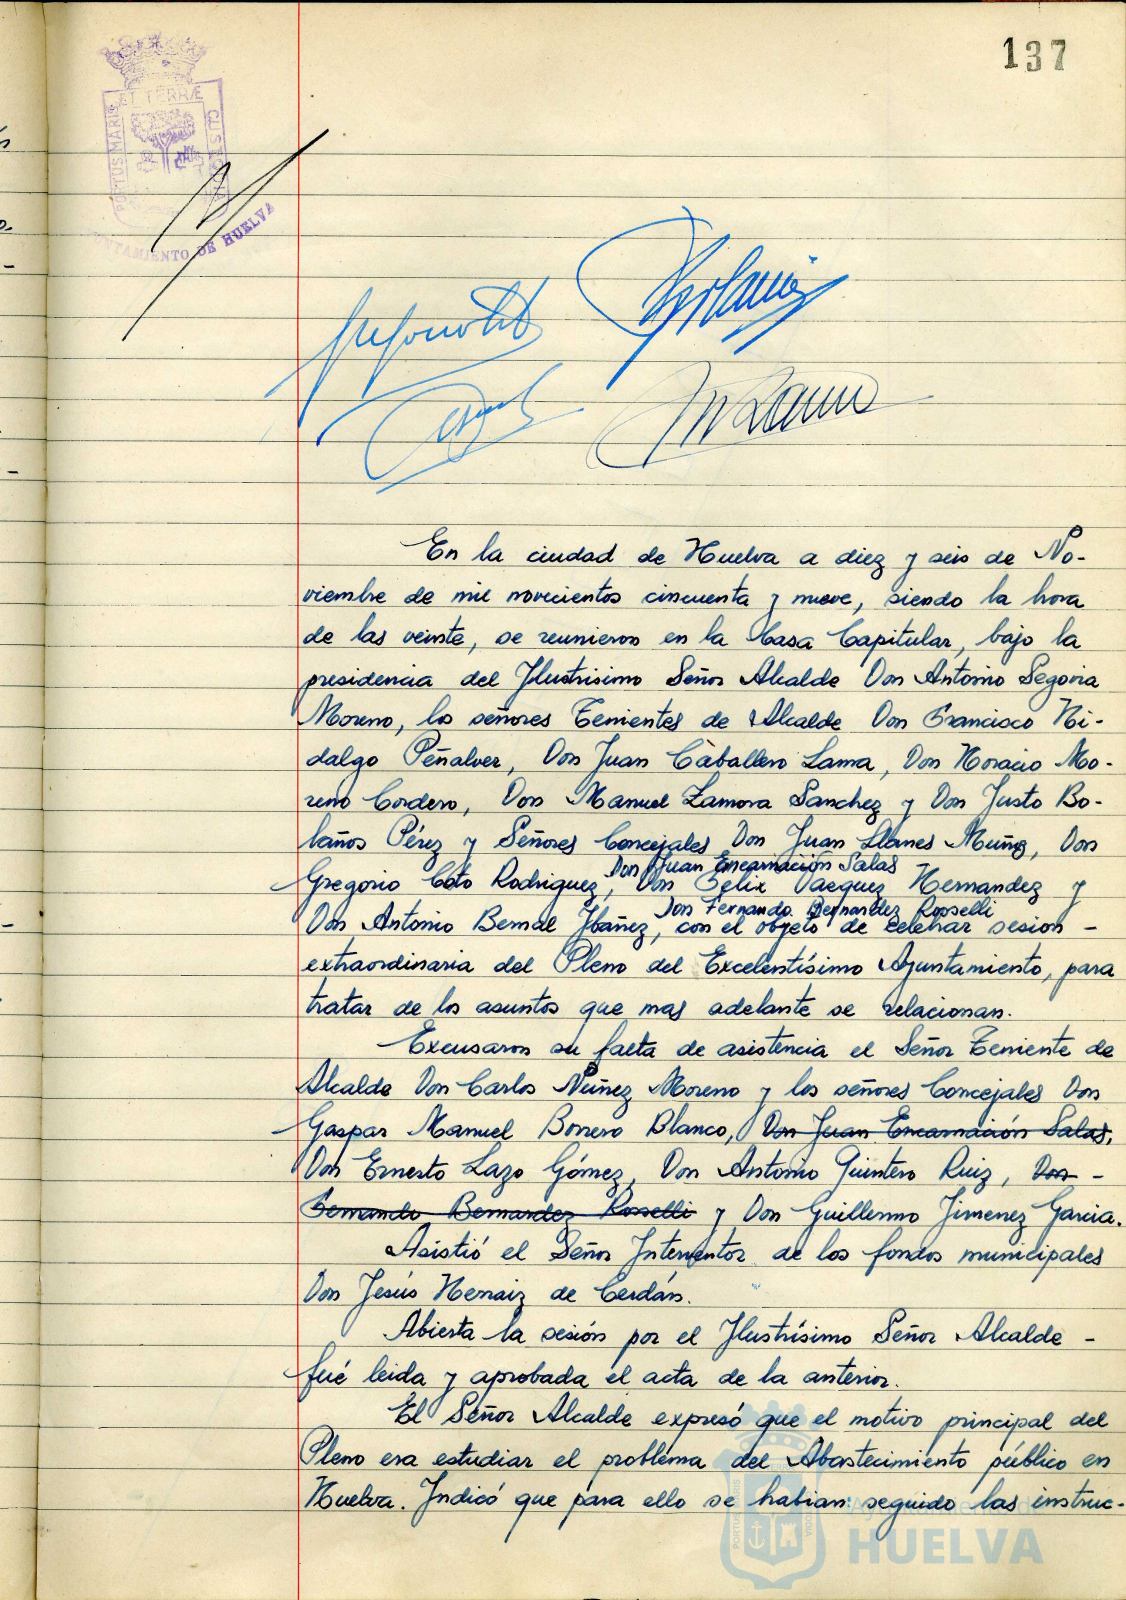 137
PORTUS MARIS ET TERRÆ CUSTODIA
AYUNTAMIENTO DE HUELVA
En la ciudad de Huelva a diez y seis de No-
viembre de mil novecientos cincuenta y nueve, siendo la hora
de las veinte, se reunieron en la Casa Capitular, bajo la
presidencia del Ilustrisimo Señor Alcalde Don Antonio Segovia
Moreno, los señores Tenientes de Alcalde Don Francisco Hi-
dalgo Peñalver, Don Juan Caballero Lama, Don Horacio Mo-
reno Cordero, Don Manuel Zamora Sanchez y Don Justo Bo-
laños Pérez y Señores Concejales Don Juan Llanes Muñoz, Don
Don Juan Encarnación Salas
Gregorio Coto Rodriguez, Don Felix Vazquez Hernandez y
Don Fernando Bernardez Rosselli
Don Antonio Bernal Ibáñez, con el objeto de celebrar sesion -
extraordinaria del Pleno del Excelentísimo Ayuntamiento, para
tratar de los asuntos que mas adelante se relacionan.
Excusaron su falta de asistencia el Señor Teniente de
Alcalde Don Carlos Núñez Moreno y los señores Concejales Don
Gaspar Manuel Borrero Blanco, Don Juan Encarnación Salas,
Don Ernesto Lazo Gómez, Don Antonio Quintero Ruiz, Don -
Fernando Bernardez Rosselli y Don Guillermo Jimenez Garcia.
Asistió el Señor Interventor de los fondos municipales
Don Jesús Hernaiz de Cerdán.
Abierta la sesión por el Ilustrísimo Señor Alcalde -
fué leida y aprobada el acta de la anterior.
El Señor Alcalde expresó que el motivo principal del
Pleno era estudiar el problema del Abastecimiento público en
Huelva. Indicó que para ello se habian seguido las instruc-
HUELVA